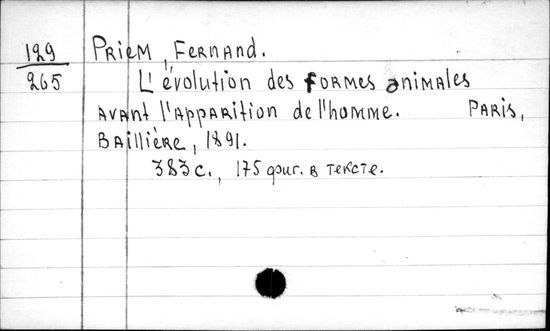 129 Priem, Fernand.
265 L'évolution des formes animales
avant l'apparition de l'homme. Paris,
Baillière, 1891.
383 с., 175 фиг. в тексте.